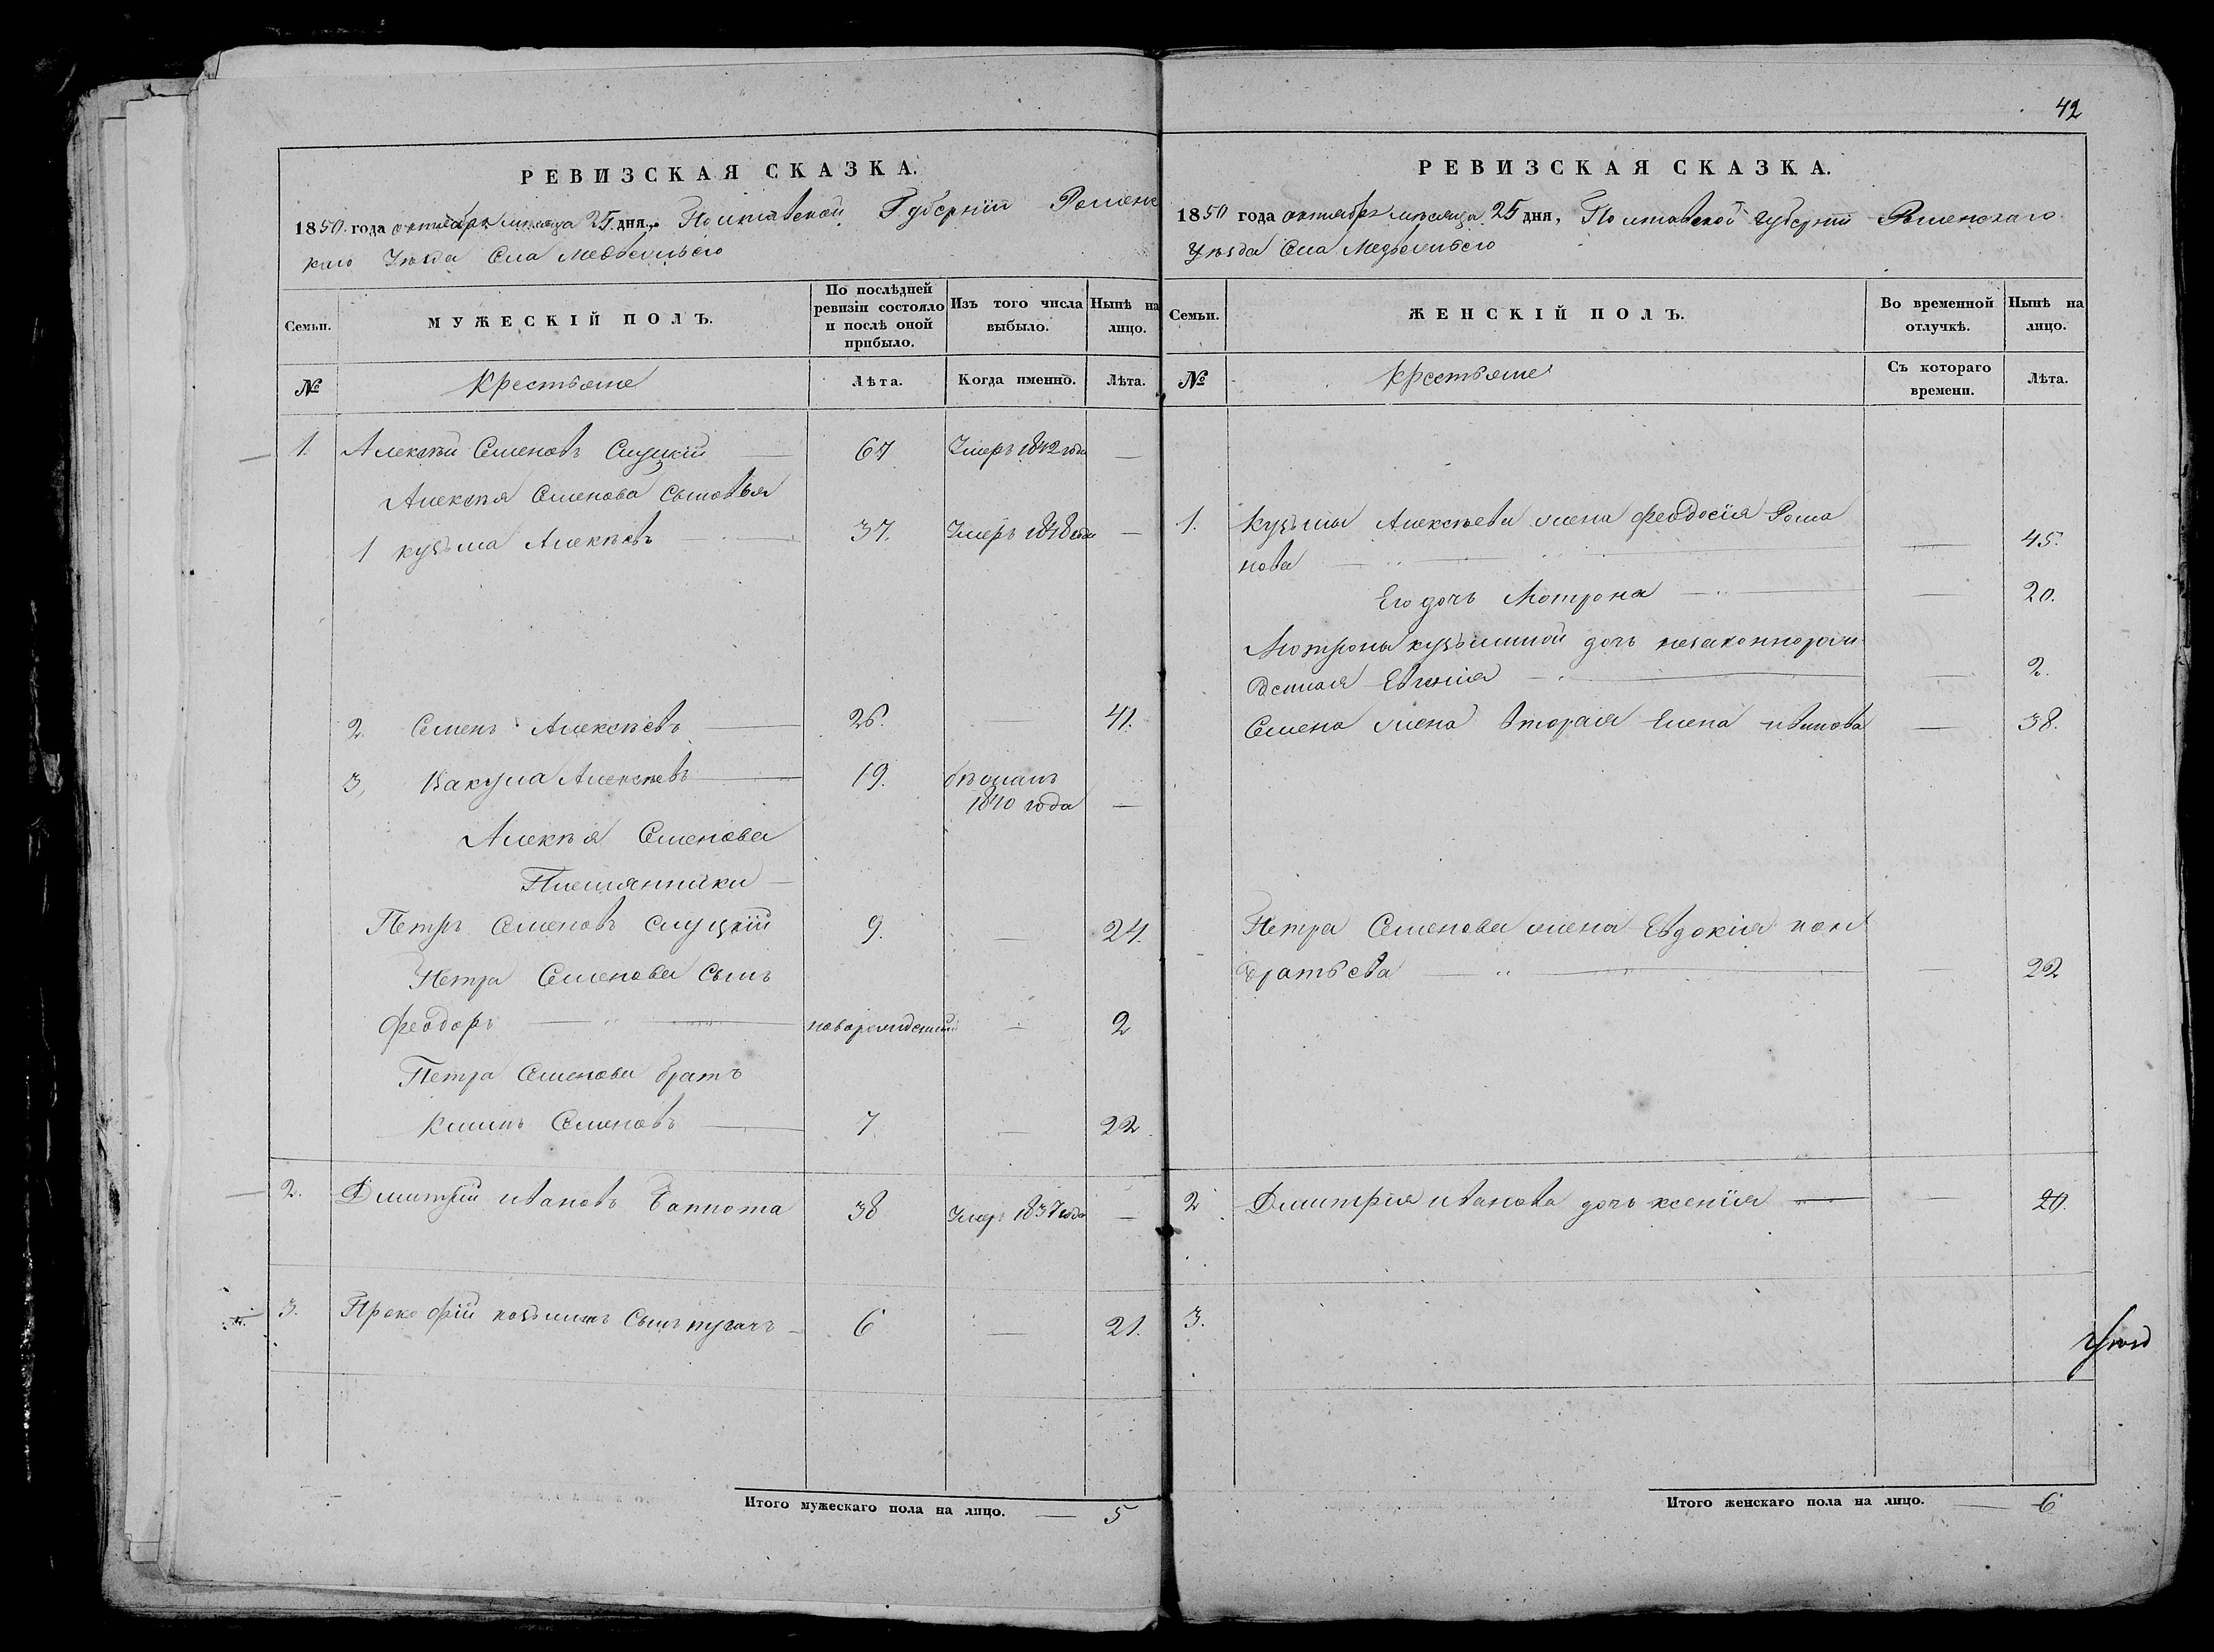 42
РЕВИЗСКАЯ СКАЗКА.
1850. года октября месяца 25. дня, Полтавской Губерніи Роменс
каго Уезда Села Медвежьего
Семьи.
МУЖЕСКІЙ ПОЛЪ.
По послѣдней ревизіи состояло и послѣ оной прибыло.
Изъ того числа выбыло.
Нынѣ на лицо.
№
Крестьяне
Лѣта.
Когда именно.
Лѣта.
1. Алексѣй Семеновъ Слуцкій 67 Умеръ 1842 года —
Алексѣя Семенова Сыновья
1 Кузьма Алексѣевъ 37. Умеръ 1848 года —
2. Семенъ Алексѣевъ 26. 41.
3, Вакула Алексѣевъ 19. бѣжалъ
1840 года —
Алексѣя Семенова
Племянники —
Петръ Семеновъ Слуцкій 9. — 24.
Петра Семенова Сынъ
Феодоръ новорожденный — 2
Петра Семенова братъ
Климъ Семеновъ 7 — 22
2. Дмитрій Ивановъ 38 Умеръ 1837 года —
3. Прокофій Кузьминъ Сынъ Пугачъ — 6 — 21.
Итого мужескаго пола на лицо. — 5
РЕВИЗСКАЯ СКАЗКА.
1850 года октября месяца 25 дня, Полтавской Губерніи Роменскаго
Уѣзда Села Медвежьего
Семьи.
ЖЕНСКІЙ ПОЛЪ.
Во временной отлучкѣ.
Нынѣ на лицо.
№
Крестьяне
Съ котораго времени.
Лѣта.
1. Кузьмы Алексѣева жена Феодосія Рома
нова — 45.
Его дочь Мотрона — 20.
Мотроны Кузьминой дочь незаконнорож
денная Евгенія — 2.
Семена жена вторая Елена Иванова — 38.
Петра Семенова жена Евдокія Кон
дратьева — 22
2 Дмитрія Иванова дочь Ксенія — 20.
3.
Итого женскаго пола на лицо. — 6